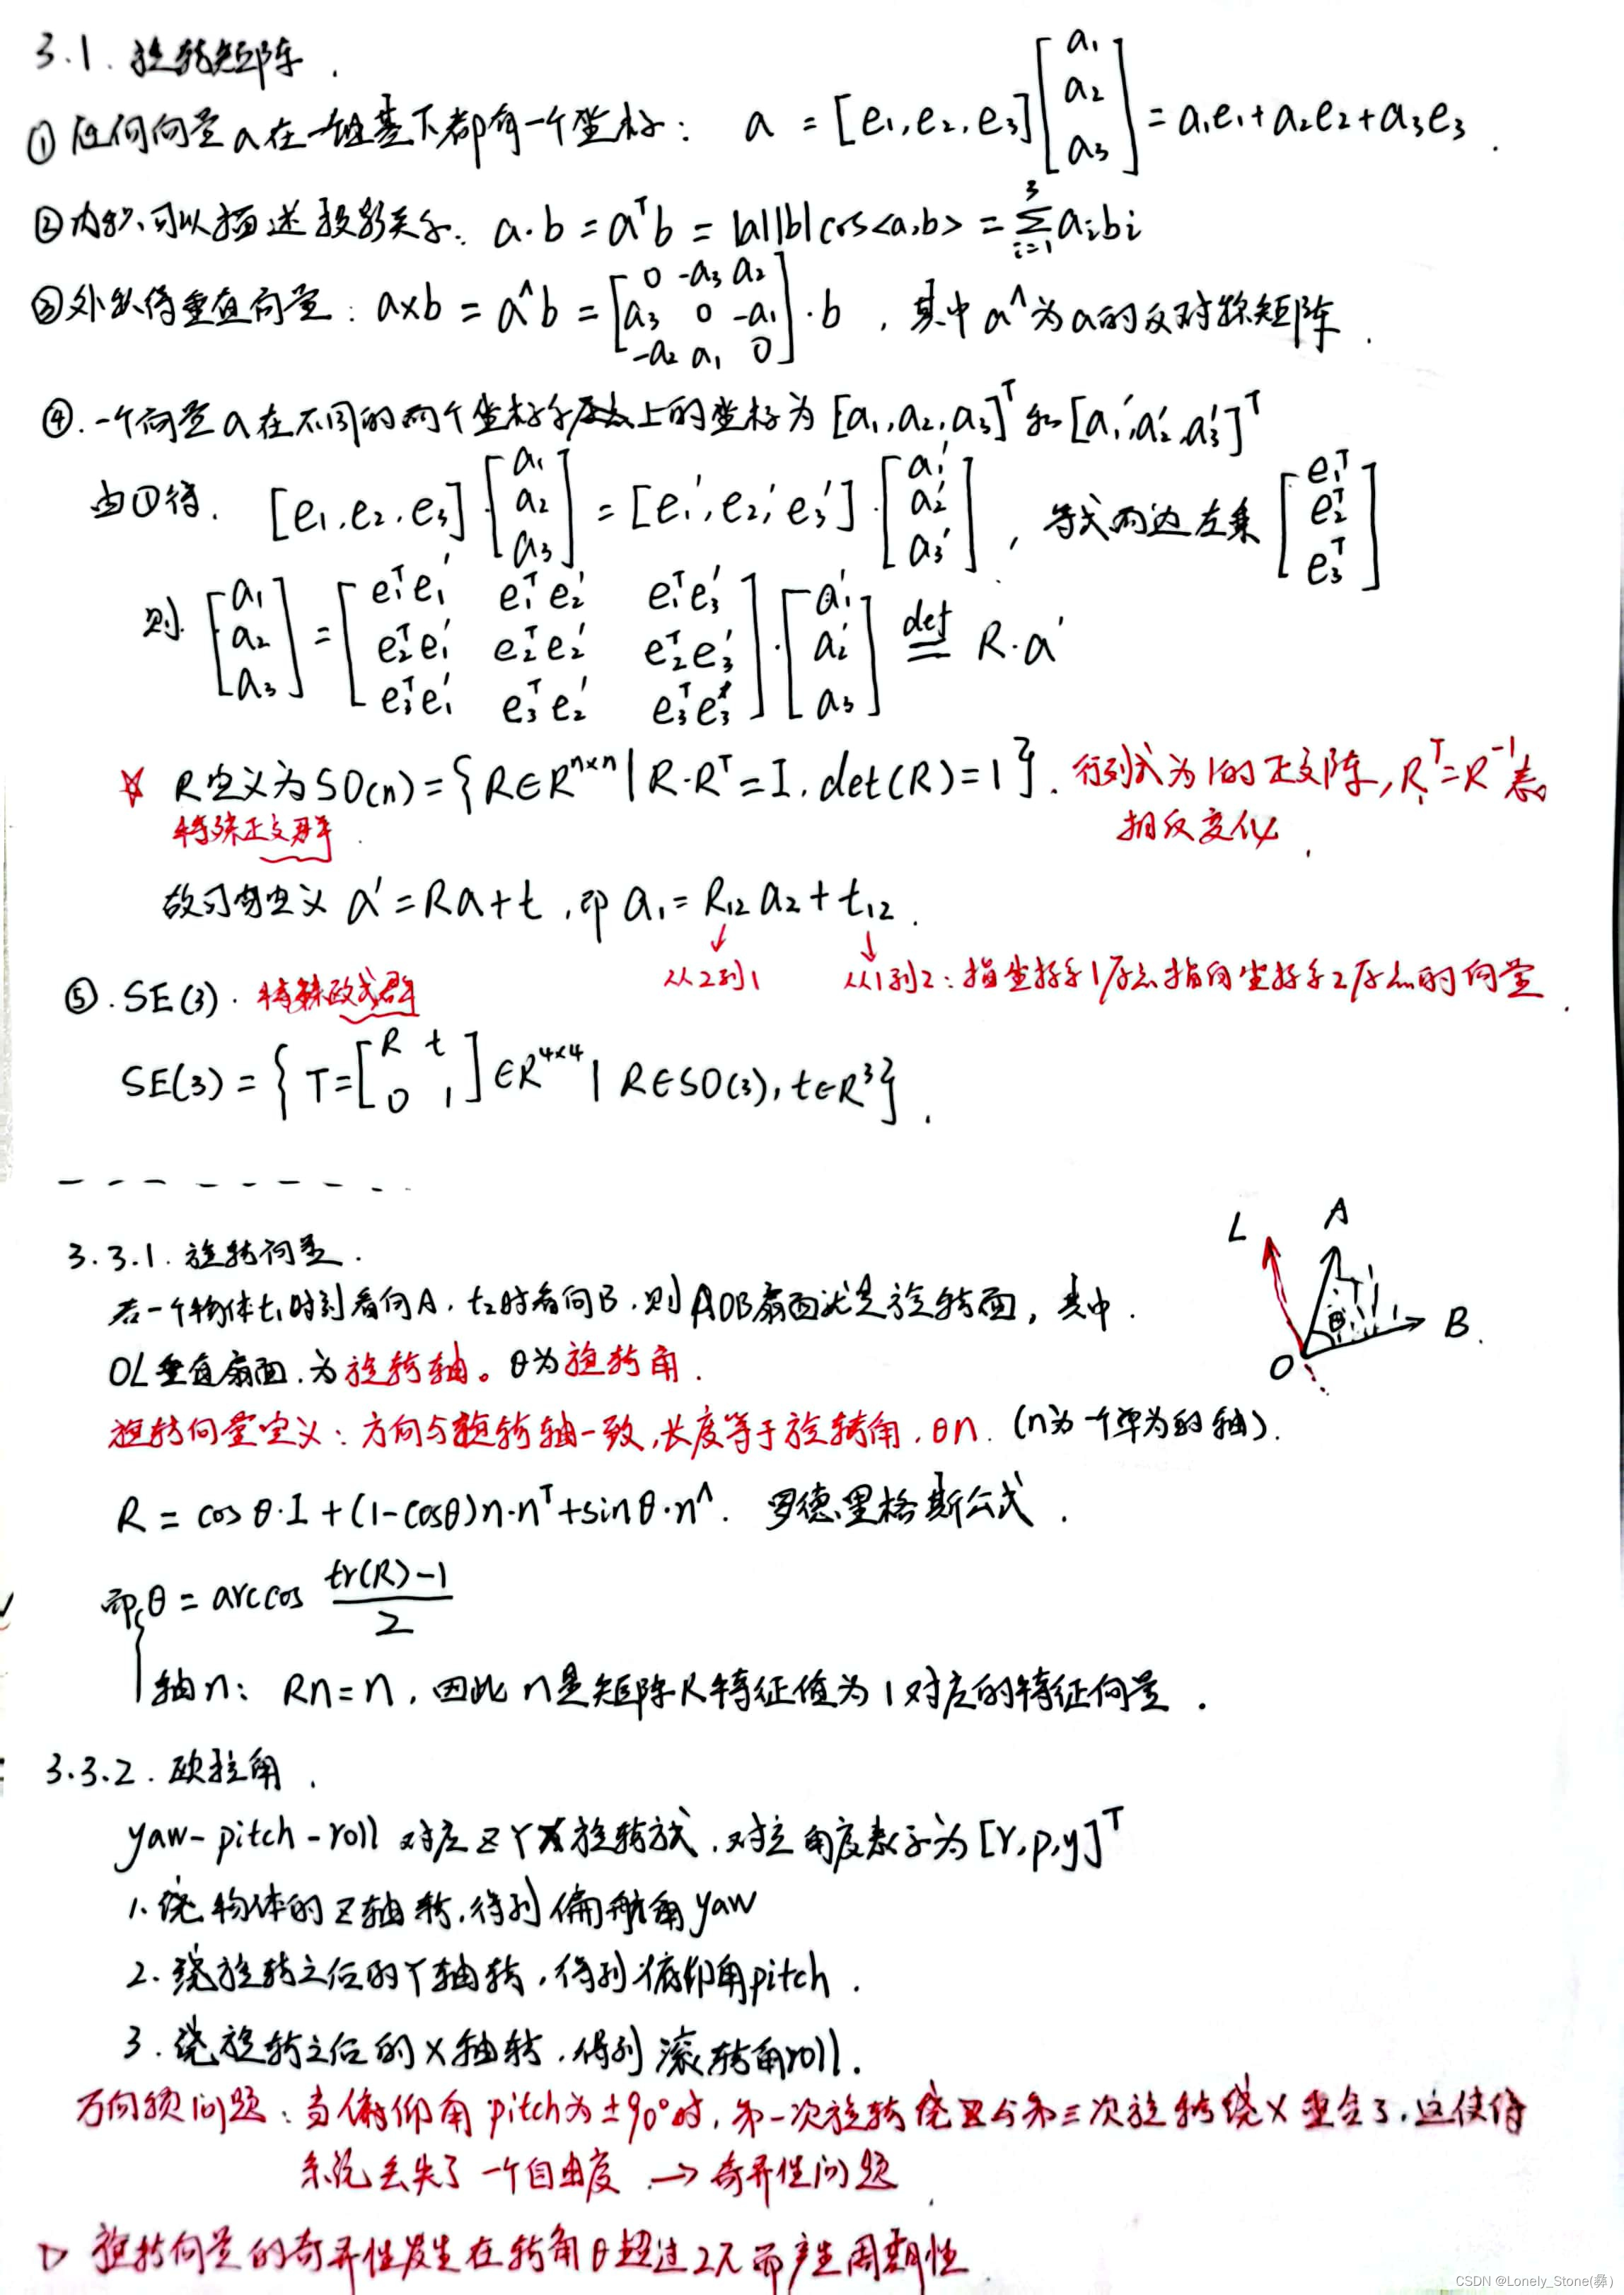 3.1. 旋转矩阵.
①任何向量a在一组基下都有一个坐标: a = [e₁,e₂,e₃][a₁ a₂ a₃] = a₁e₁+a₂e₂+a₃e₃.
②内积可以描述投影关系: a·b = aᵀb = |a||b|cos<a,b> = Σ³ᵢ₌₁ aᵢbᵢ
③外积得垂直向量: a×b = a^b = [0 -a₃ a₂ a₃ 0 -a₁ -a₂ a₁ 0]·b , 其中a^为a的反对称矩阵.
④.一个向量a在不同的两个坐标系原点上的坐标为[a₁,a₂,a₃]ᵀ和[a₁′,a₂′,a₃′]ᵀ
由①得. [e₁,e₂,e₃]·[a₁ a₂ a₃] = [e₁′,e₂′,e₃′]·[a₁′ a₂′ a₃′] , 等式两边左乘[e₁ᵀ e₂ᵀ e₃ᵀ]
则 [a₁ a₂ a₃] = [e₁ᵀe₁′ e₁ᵀe₂′ e₁ᵀe₃′ e₂ᵀe₁′ e₂ᵀe₂′ e₂ᵀe₃′ e₃ᵀe₁′ e₃ᵀe₂′ e₃ᵀe₃′]·[a₁′ a₂′ a₃] def= R·a′
☆ R定义为SO(n) = {R∈Rⁿˣⁿ | R·Rᵀ=I, det(R)=1}. 行列式为1的正交阵, Rᵀ=R⁻¹表示
特殊正交群 相反变化.
故可自定义 a′=Ra+t , 即 a₁=R₁₂a₂+t₁₂.
从2到1 从1到2: 指坐标系1原点指向坐标系2原点的向量.
⑤. SE(3). 特殊欧式群
SE(3) = {T=[R t 0 1]∈R⁴ˣ⁴ | R∈SO(3), t∈R³}.
3.3.1. 旋转向量.
若一个物体t₁时刻看向A, t₂时看向B, 则AOB扇面就是旋转面, 其中.
OL垂直扇面,为旋转轴。θ为旋转角.
L A θ O B
旋转向量定义: 方向与旋转轴一致,长度等于旋转角, θn. (n为一个单为的轴).
R = cosθ·I+(1-cosθ)n·nᵀ+sinθ·n^. 罗德里格斯公式.
即 θ = arccos (tr(R)-1)/2
轴n: Rn=n, 因此n是矩阵R特征值为1对应的特征向量.
3.3.2. 欧拉角.
yaw-pitch-roll 对应ZYX旋转方式, 对应角度表示为[r,p,y]ᵀ
1. 绕物体的Z轴转,得到偏航角yaw
2. 绕旋转之后的Y轴转,得到俯仰角pitch.
3. 绕旋转之后的X轴转,得到滚转角roll.
万向锁问题: 当俯仰角pitch为±90°时, 第一次旋转绕Z与第三次旋转绕X重合了,这使得
系统丢失了一个自由度 → 奇异性问题.
▷ 旋转向量的奇异性发生在转角θ超过2π而产生周期性
CSDN @Lonely_Stone(彝)